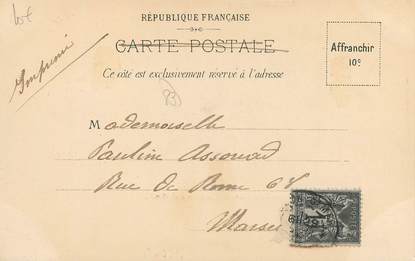 RÉPUBLIQUE FRANÇAISE
CARTE POSTALE
Ce côté est exclusivement réservé à l'adresse
Affranchir
10c
Imprimé
Mademoiselle
Pauline Assouad
Rue de Rome 68
Marse